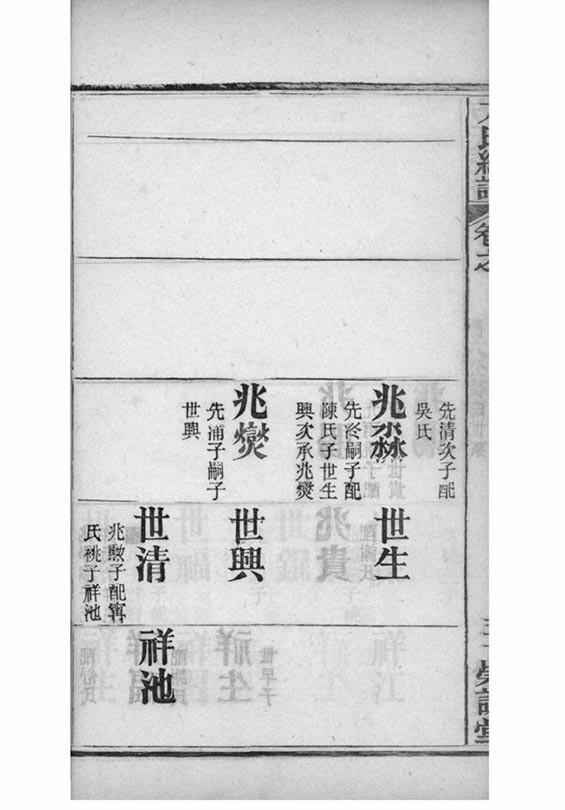 先清次子配
吳氏
兆森
先冬嗣子配
陳氏子世生
興次承兆燮
兆燮
先浦子嗣子
世興
世生
世興
世清
兆勲子配寗
氏祧子祥池
祥池